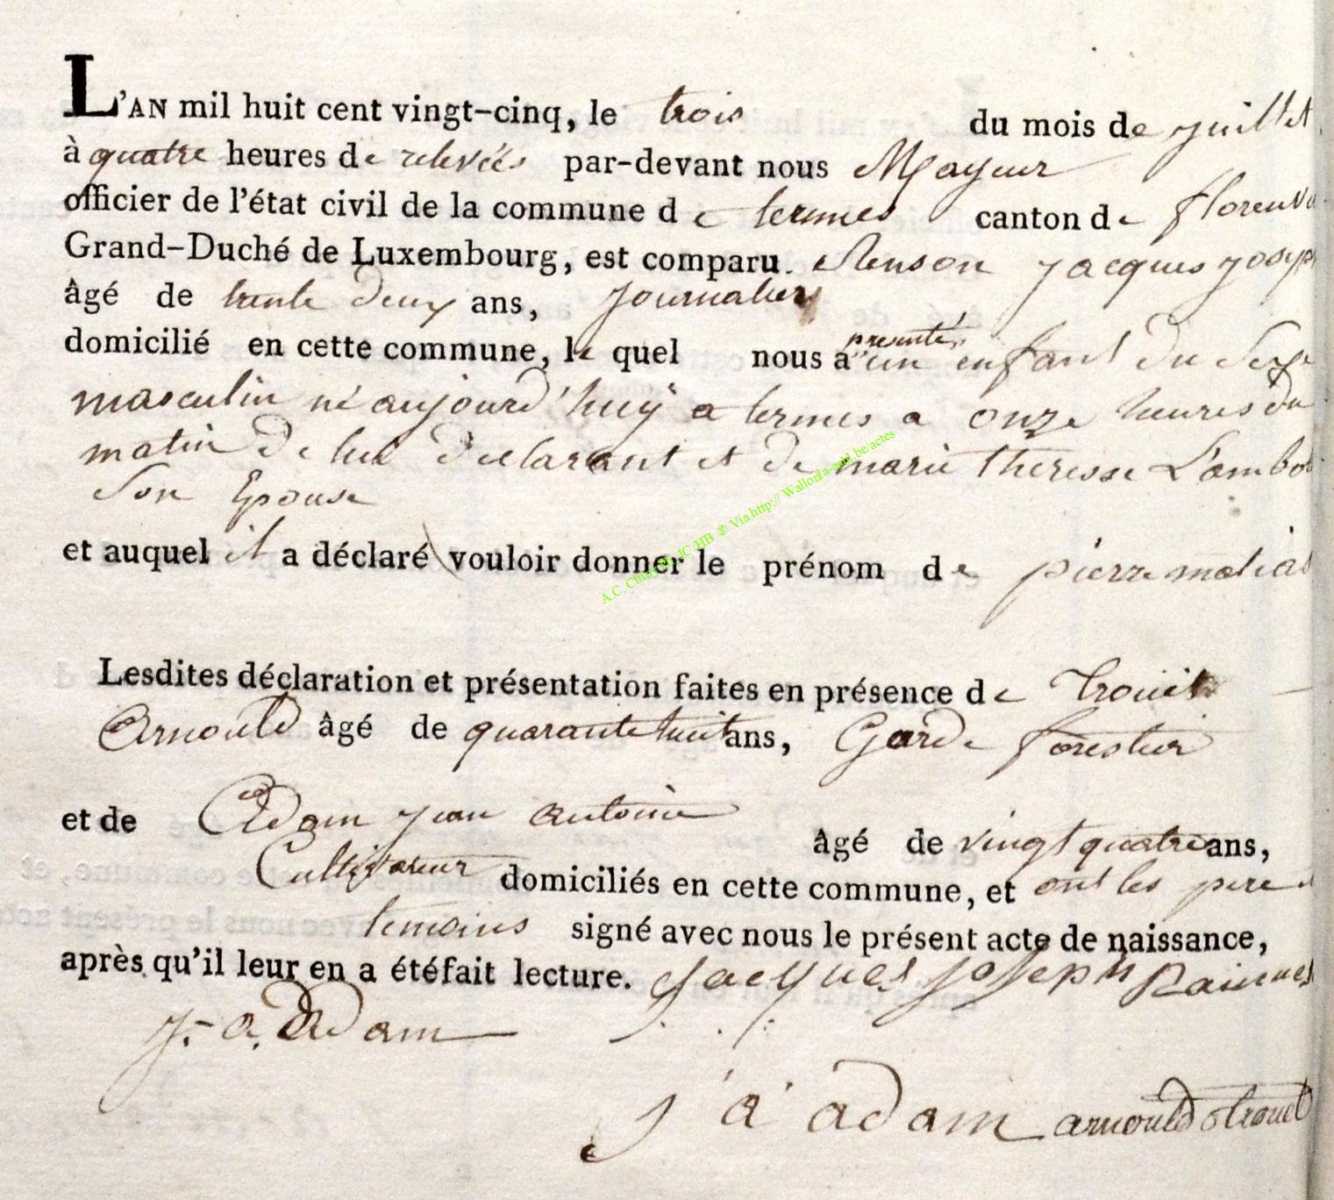 L'AN mil huit cent vingt-cinq, le trois du mois de juillet
à quatre heures de relevées par-devant nous Mayeur
officier de l'état civil de la commune d e termes canton d e florenvil
Grand-Duché de Luxembourg, est comparu. Renson jacques joseph
âgé de trente deux ans, journalier
domicilié en cette commune, le quel nous a presenté un enfant du Sexe
masculin né aujourd'huÿ a termes a onze heures du
matin de lui declarant et de marie therese Lambot
Son Epouse
et auquel il a déclaré vouloir donner le prénom d e pierre matias
Lesdites déclaration et présentation faites en présence d e trouet
Arnould âgé de quarante huit ans, Garde forestier
et de Adam jean antoine âgé de vingt quatre ans,
Cultivateur domiciliés en cette commune, et ont les pere et
temoins signé avec nous le présent acte de naissance,
après qu'il leur en a étéfait lecture. jacques joseph
j. a. Adam
j a adam arnould trouet